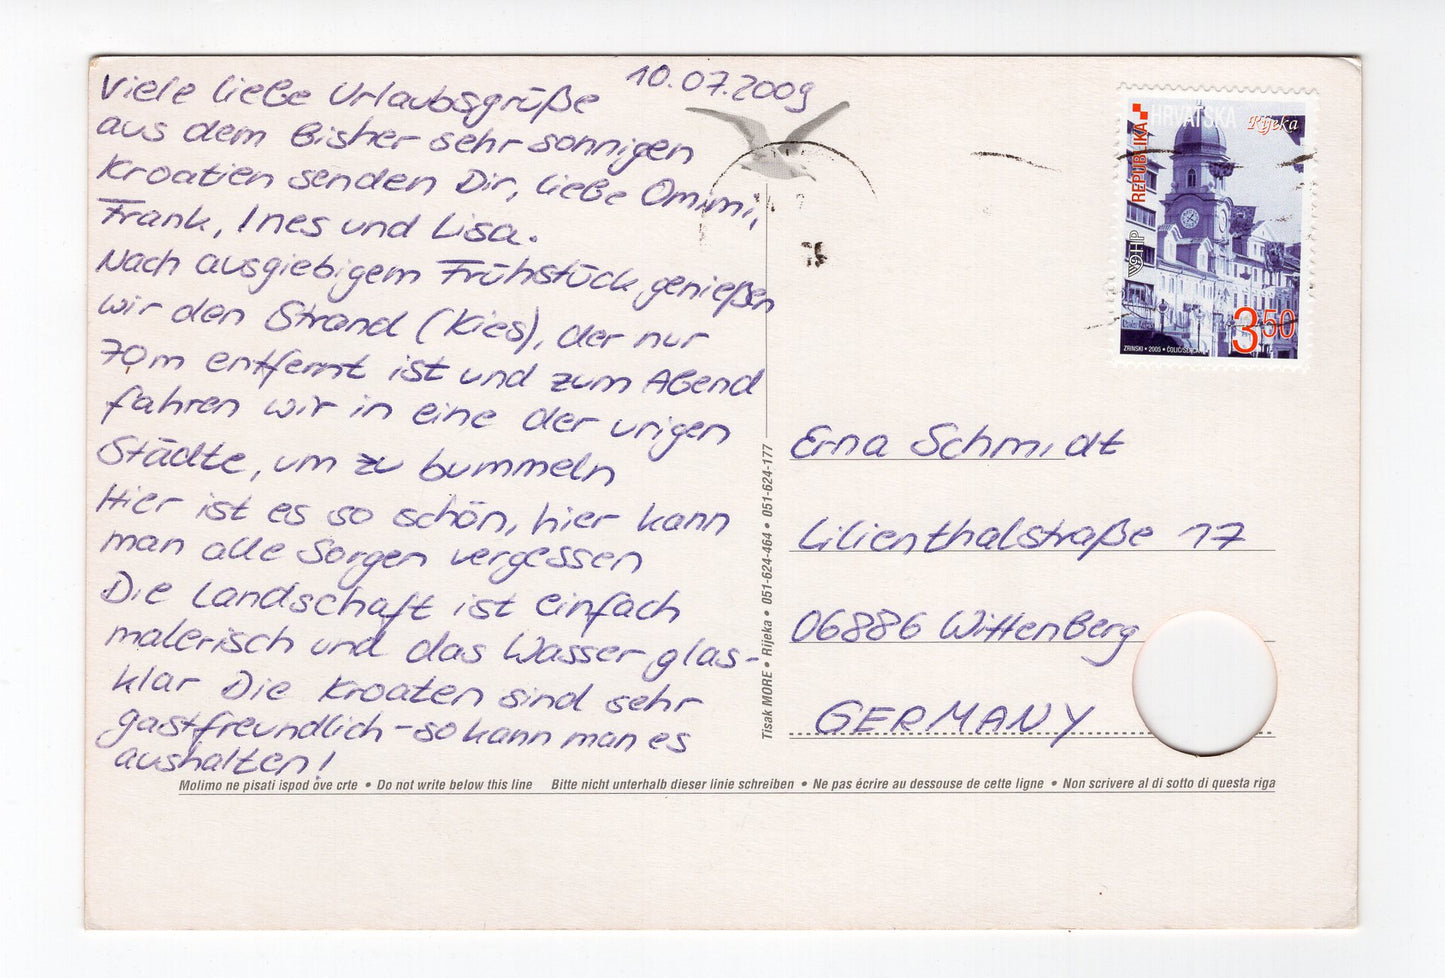 10.07.2009
Viele liebe Urlaubsgrüße
aus dem bisher sehr sonnigen
Kroatien senden Dir, liebe Omimi,
Frank, Ines und Lisa.
Nach ausgiebigem Frühstück genießen
wir den Strand (Kies), der nur
70m entfernt ist und zum Abend
fahren wir in eine der urigen
Städte, um zu bummeln
Hier ist es so schön, hier kann
man alle Sorgen vergessen
Die Landschaft ist einfach
malerisch und das Wasser glas-
klar Die Kroaten sind sehr
gastfreundlich - so kann man es
aushalten!
REPUBLIKA HRVATSKA
Rijeka
HP
3,50
ZRINSKI • 2005 •
Erna Schmidt
Lilienthalstraße 17
06886 Wittenberg
GERMANY
Tisak MORE • Rijeka • 051-624-464 • 051-624-177
Molimo ne pisati ispod ove crte • Do not write below this line Bitte nicht unterhalb dieser linie schreiben • Ne pas écrire au dessouse de cette ligne • Non scrivere al di sotto di questa riga